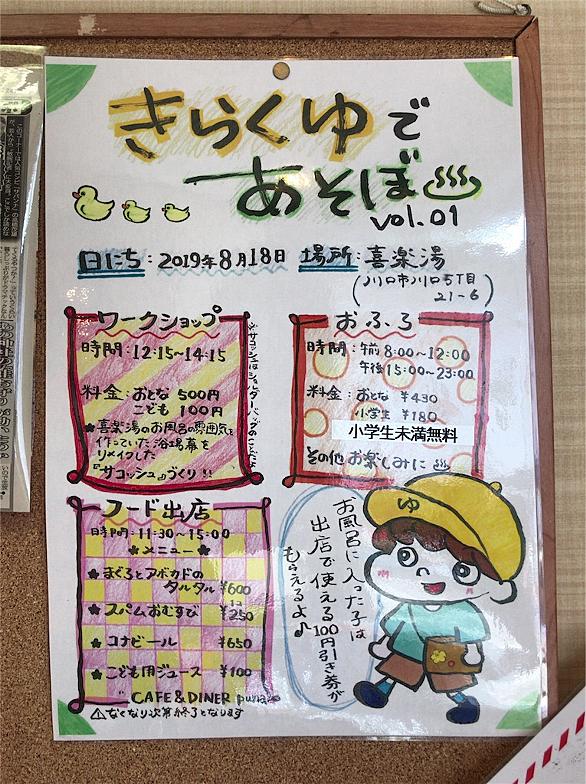 きらくゆで
あそぼ♨
vol.01
日にち：2019年8月18日 場所：喜楽湯
（川口市川口5丁目
21-6）
ワークショップ
時間：12:15~14:15
料金：おとな 500円
こども 100円
★喜楽湯のお風呂の雰囲気を
作っていた浴場幕を
リメイクした
『サコッシュ』づくり!!
※サコッシュはショルダーバッグのことだよ
おふろ
時間：午前 8:00~12:00
午後 15:00~23:00
料金：おとな ¥430
小学生 ¥180
小学生未満無料
その他お楽しみに♨
フード出店
時間：11:30~15:00
★メニュー★
★まぐろとアボカドの
タルタル ¥600
★スパムおむすび ¥250
★コナビール ¥650
★こども用ジュース ¥100
CAFE&DINER
⚠なくなり次第終了となります
お風呂に入った子は
出店で使える100円引き券が
もらえるよ♪
ゆ